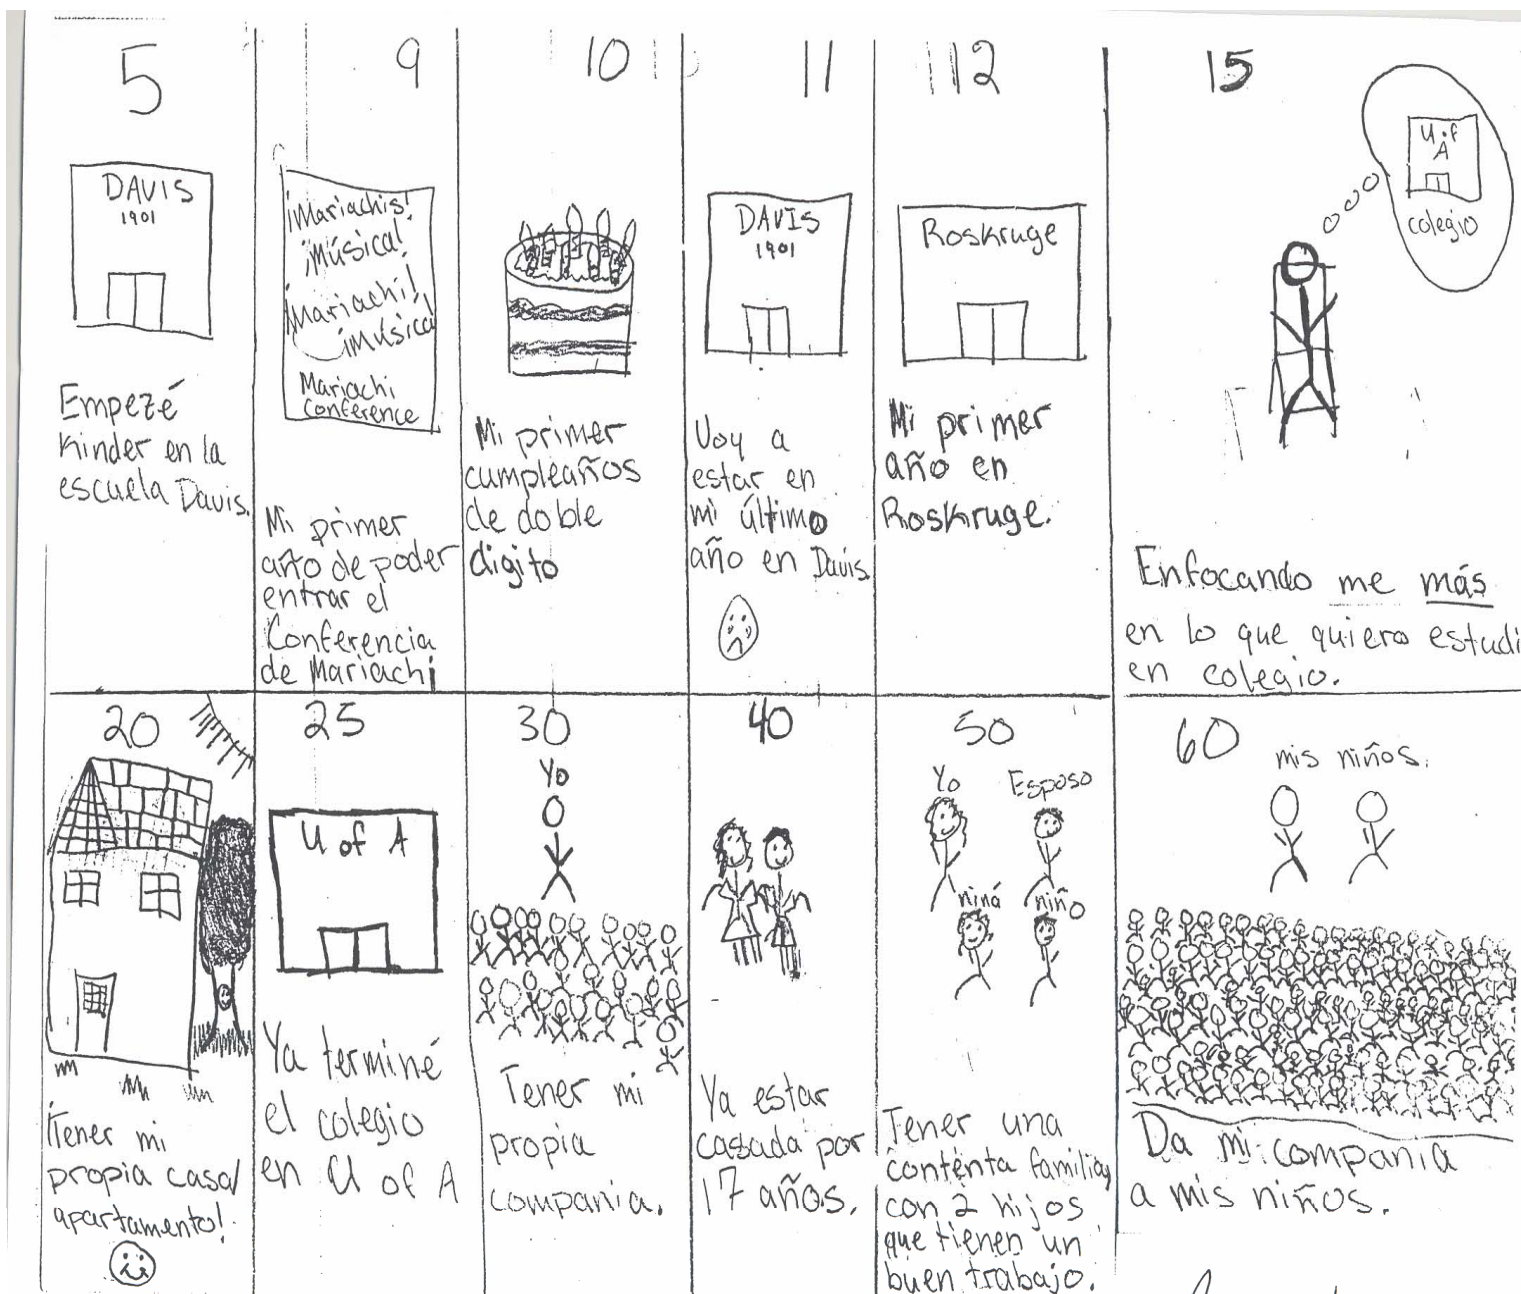 5
DAVIS
1901
Empezé
Kinder en la
escuela Davis.
9
¡Mariachis!
¡Música!
¡Mariachi!
¡Música!
Mariachi
Conference
Mi primer
año de poder
entrar el
Conferencia
de Mariachi
10
Mi primer
cumpleaños
de doble
digito
11
DAVIS
1901
Voy a
estar en
mi último
año en Davis.
12
Roskruge
Mi primer
año en
Roskruge.
15
U of
A
colegio
Enfocando me más
en lo que quiero estudi
en colegio.
20
¡Tener mi
propia casa/
apartamento!
25
U of A
Ya terminé
el colegio
en U of A
30
Yo
Tener mi
propia
compania.
40
Ya estar
casada por
17 años.
50
Yo Esposo
niná niño
Tener una
contenta familia,
con 2 hijos
que tienen un
buen trabajo.
60
mis niños.
Da mi compania
a mis niños.